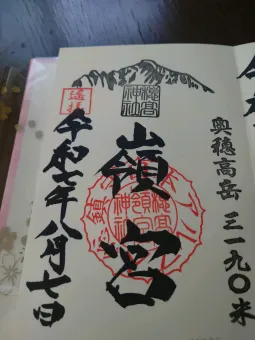 奥穂高岳 三一九〇米
穂高
神社
嶺宮
遥拝
令和六年八月七日